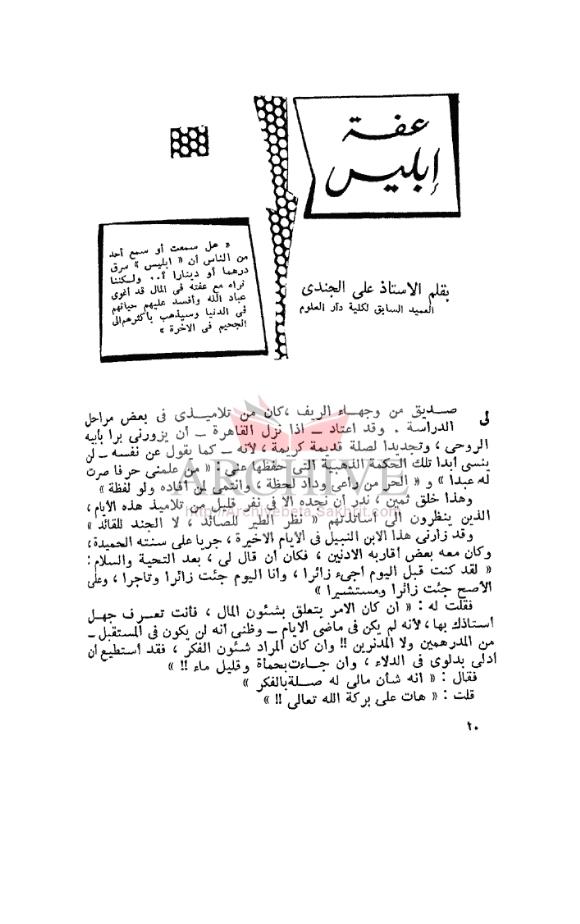 عفة
إبليس
« هل سمعت أو سمع أحد
من الناس أن « ابليس » سرق
درهما أو دينارا ؟ .. ولكننا
نراه مع عفته فى المال قد أغوى
عباد الله وأفسد عليهم حياتهم
فى الدنيا وسيذهب بأكثرهم الى
الجحيم فى الآخرة »
بقلم الاستاذ على الجندى
العميد السابق لكلية دار العلوم
لى صديق من وجهاء الريف ، كان من تلاميذى فى بعض مراحل
الدراسة . وقد اعتاد ــ اذا نزل القاهرة ــ أن يزورنى برا بأبيه
الروحى ، وتجديدا لصلة قديمة كريمة ، لأنه ــ كما يقول عن نفسه ــ لن
ينسى أبدا تلك الحكمة الذهبية التى حفظها على : « من علمنى حرفا صرت
له عبدا » و « الحر من راعى وداد لحظة ، وانتمى لمن أفاده ولو لفظة »
وهذا خلق ثمين ، ندر أن نجده الا فى نفر قليل من تلاميذ هذه الأيام ،
الذين ينظرون الى أساتذتهم « نظر الطير للصائد ، لا الجند للقائد »
وقد زارنى هذا الابن النبيل فى الأيام الأخيرة ، جريا على سنته الحميدة ،
وكان معه بعض أقاربه الأدنين ، فكان أن قال لى ، بعد التحية والسلام :
« لقد كنت قبل اليوم أجىء زائرا ، وأنا اليوم جئت زائرا وتاجرا ، وعلى
الأصح جئت زائرا ومستشيرا »
فقلت له : « ان كان الأمر يتعلق بشئون المال ، فأنت تعرف جهل
أستاذك بها ، لأنه لم يكن فى ماضى الأيام ــ وظنى أنه لن يكون فى المستقبل ــ
من المدرهمين ولا المدنرين !! وان كان المراد شئون الفكر ، فقد أستطيع أن
أدلى بدلوى فى الدلاء ، وان جاءت بحمأة وقليل ماء !! »
فقال : « انه شأن مالى له صلة بالفكر »
قلت : « هات على بركة الله تعالى !! »
٢٠
ARCHIVE
http://Archivebeta.Sakhrit.com